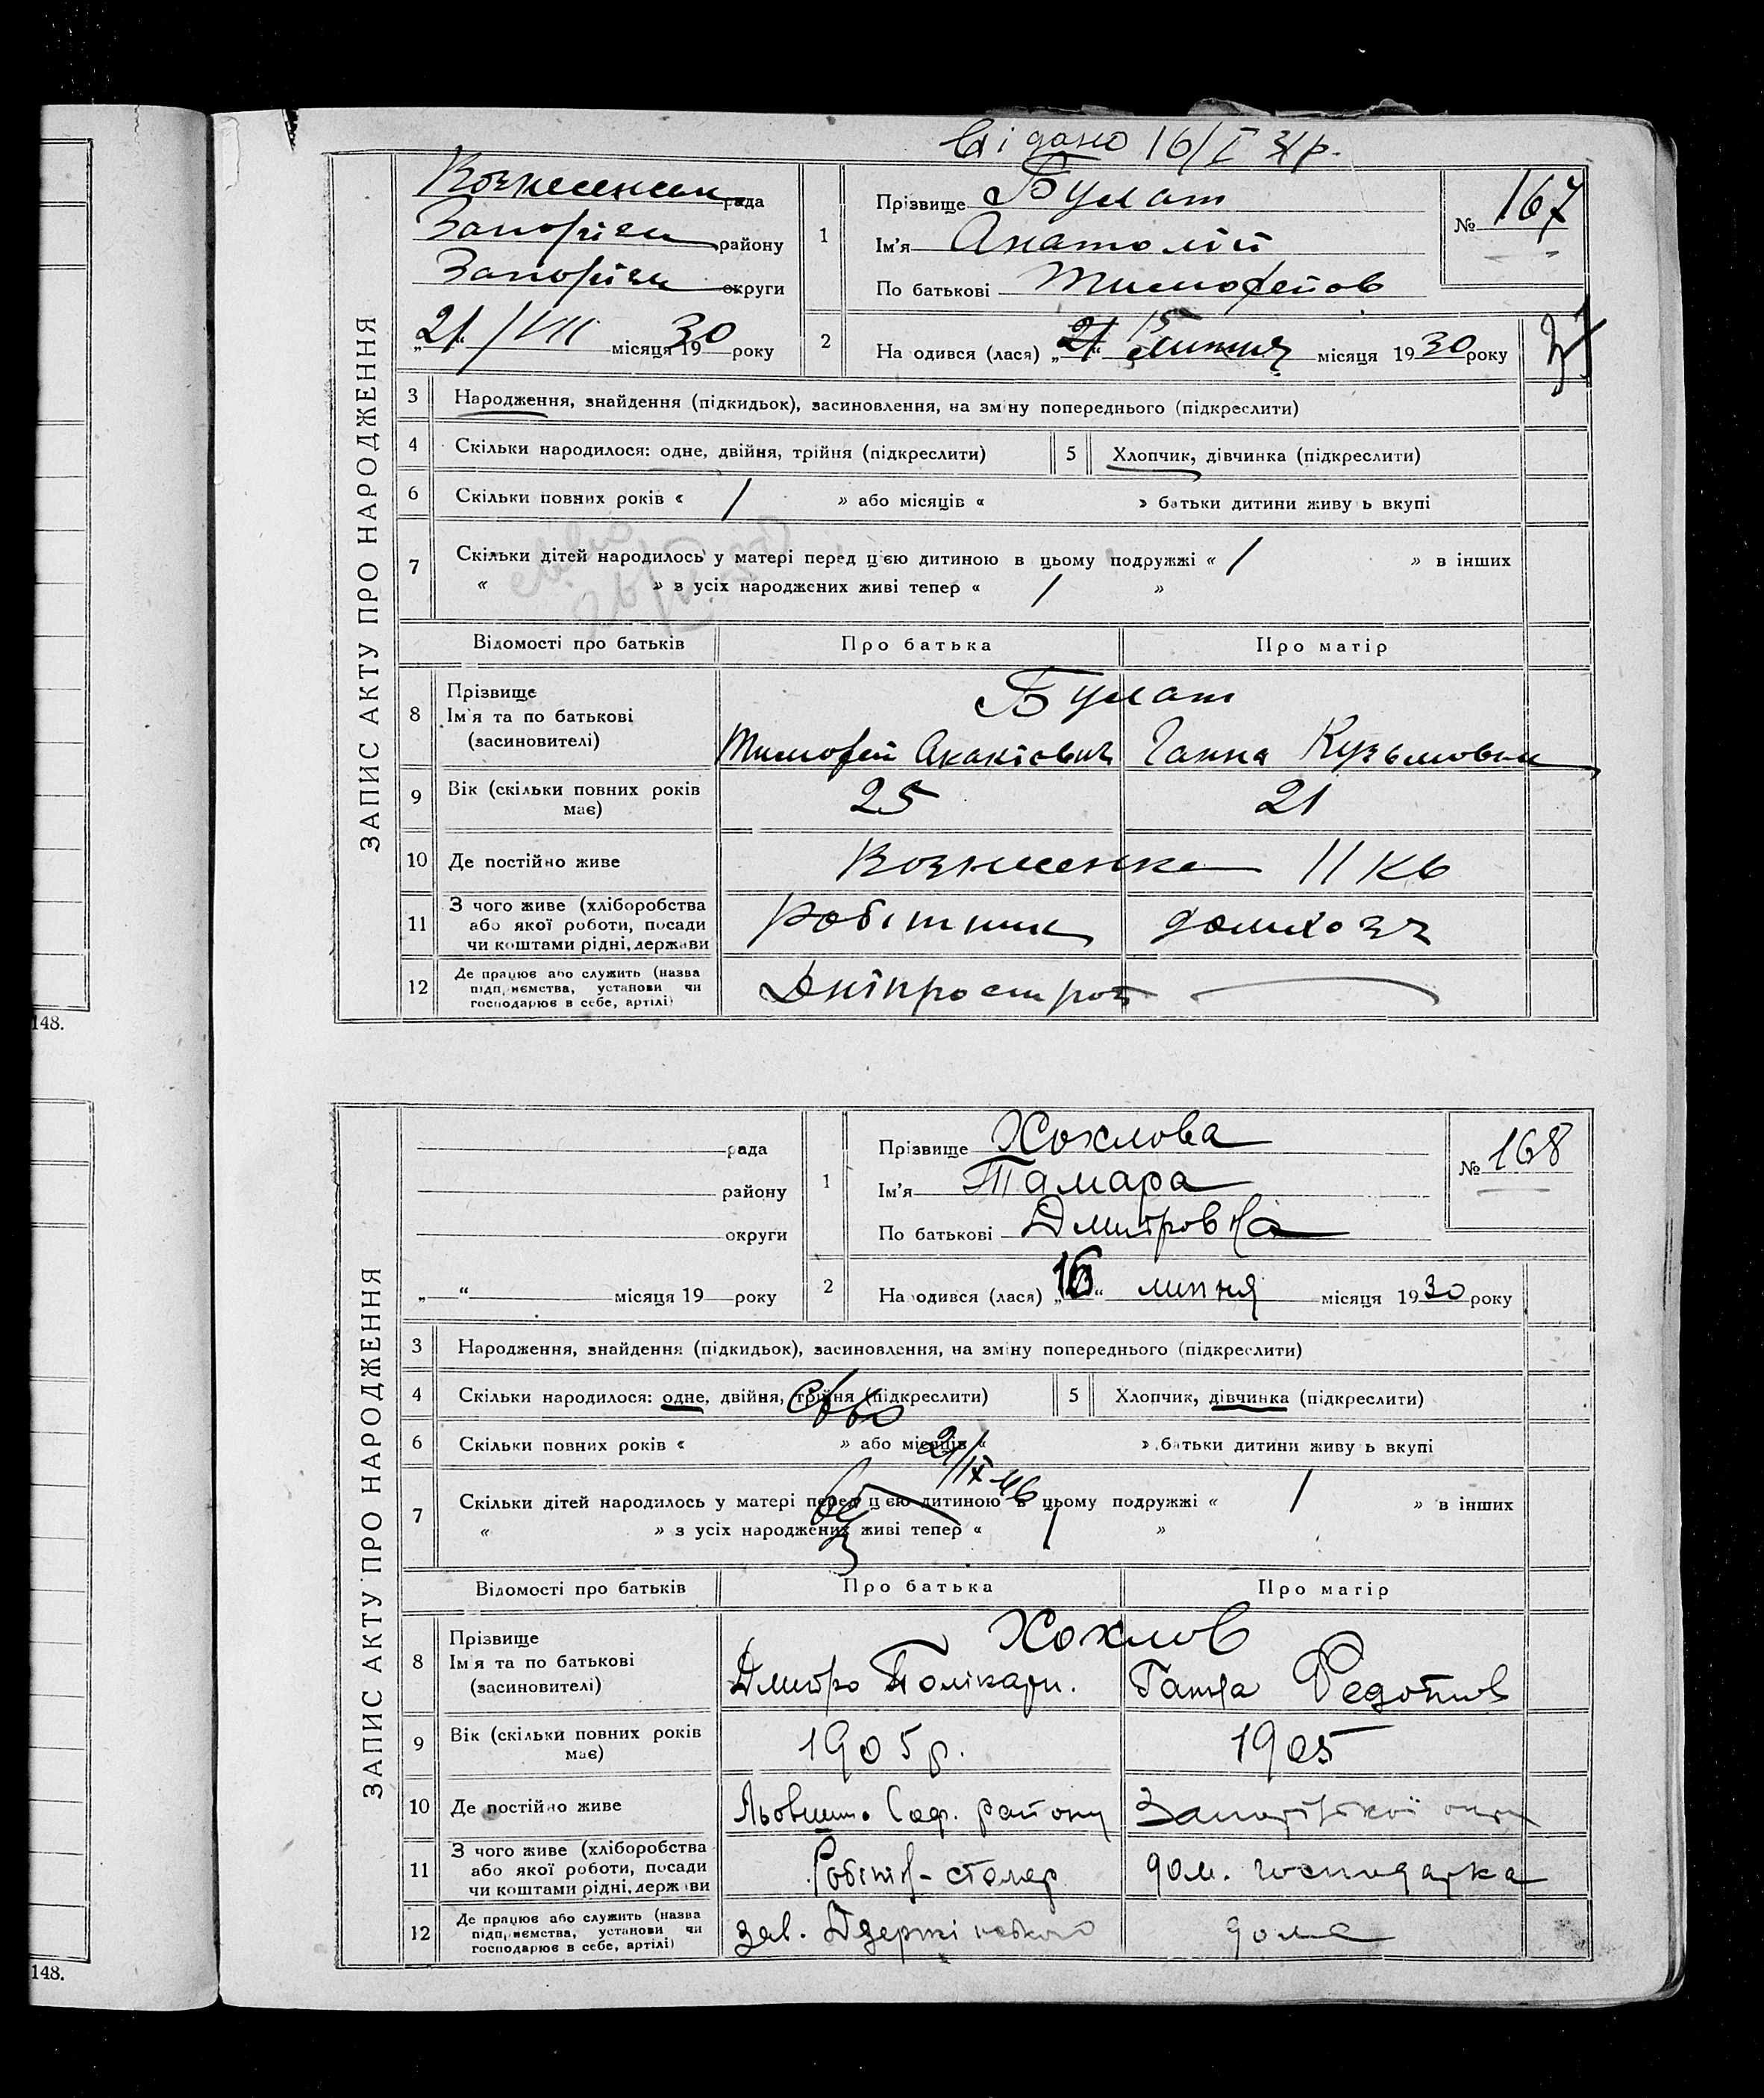 148.
148.
Відано 16/I 31р.
ЗАПИС АКТУ ПРО НАРОДЖЕННЯ
Вознесенськ рада
Запоріськ району
Запорізьк округи
„21“ / VII місяця 1930 року
1
Прізвище Булат
Ім'я Анатолій
По батькові Тимофейов
№ 167
2
На одився (лася) „21“ 15 липня місяця 1930 року
3 Народження, знайдення (підкидьок), засиновлення, на зміну попереднього (підкреслити)
4 Скільки народилося: одне, двійня, трійня (підкреслити)
5 Хлопчик, дівчинка (підкреслити)
6 Скільки повних років « 1 » або місяців « » батьки дитини живу ь вкупі
7 Скільки дітей народилось у матері перед цією дитиною в цьому подружжі « 1 » в інших
« » з усіх народжених живі тепер « 1 »
Відомості про батьків Про батька Про матір
8 Прізвище
Ім'я та по батькові
(засиновителі)
Булат
Тимофей Акакієвич Ганна Кузьмовна
9 Вік (скільки повних років
має)
25 21
10 Де постійно живе Вознесенка II кв
11 З чого живе (хліборобства
або якої роботи, посади
чи коштами рідні, держави
робітник домхозч
12 Де працює або служить (назва
підприємства, установи чи
господарює в себе, артілі)
Дніпрострой
ЗАПИС АКТУ ПРО НАРОДЖЕННЯ
рада
району
округи
„ “ місяця 19 року
1
Прізвище Хохлова
Ім'я Тамара
По батькові Дмитровна
№ 168
2
На одився (лася) „16“ липня місяця 1930 року
3 Народження, знайдення (підкидьок), засиновлення, на зміну попереднього (підкреслити)
4 Скільки народилося: одне, двійня, трійня (підкреслити)
5 Хлопчик, дівчинка (підкреслити)
6 Скільки повних років « » або місяців « » батьки дитини живу ь вкупі
7 Скільки дітей народилось у матері перед цією дитиною в цьому подружжі « 1 » в інших
« » з усіх народжених живі тепер « 1 »
Відомості про батьків Про батька Про матір
8 Прізвище
Ім'я та по батькові
(засиновителі)
Хохлов
Дмитро Полікарп. Ганна Федотов
9 Вік (скільки повних років
має)
1905 р. 1905
10 Де постійно живе
району Запорізької окр
11 З чого живе (хліборобства
або якої роботи, посади
чи коштами рідні, держави
Робітн-столяр дом. господарка
12 Де працює або служить (назва
підприємства, установи чи
господарює в себе, артілі)
зав. дома